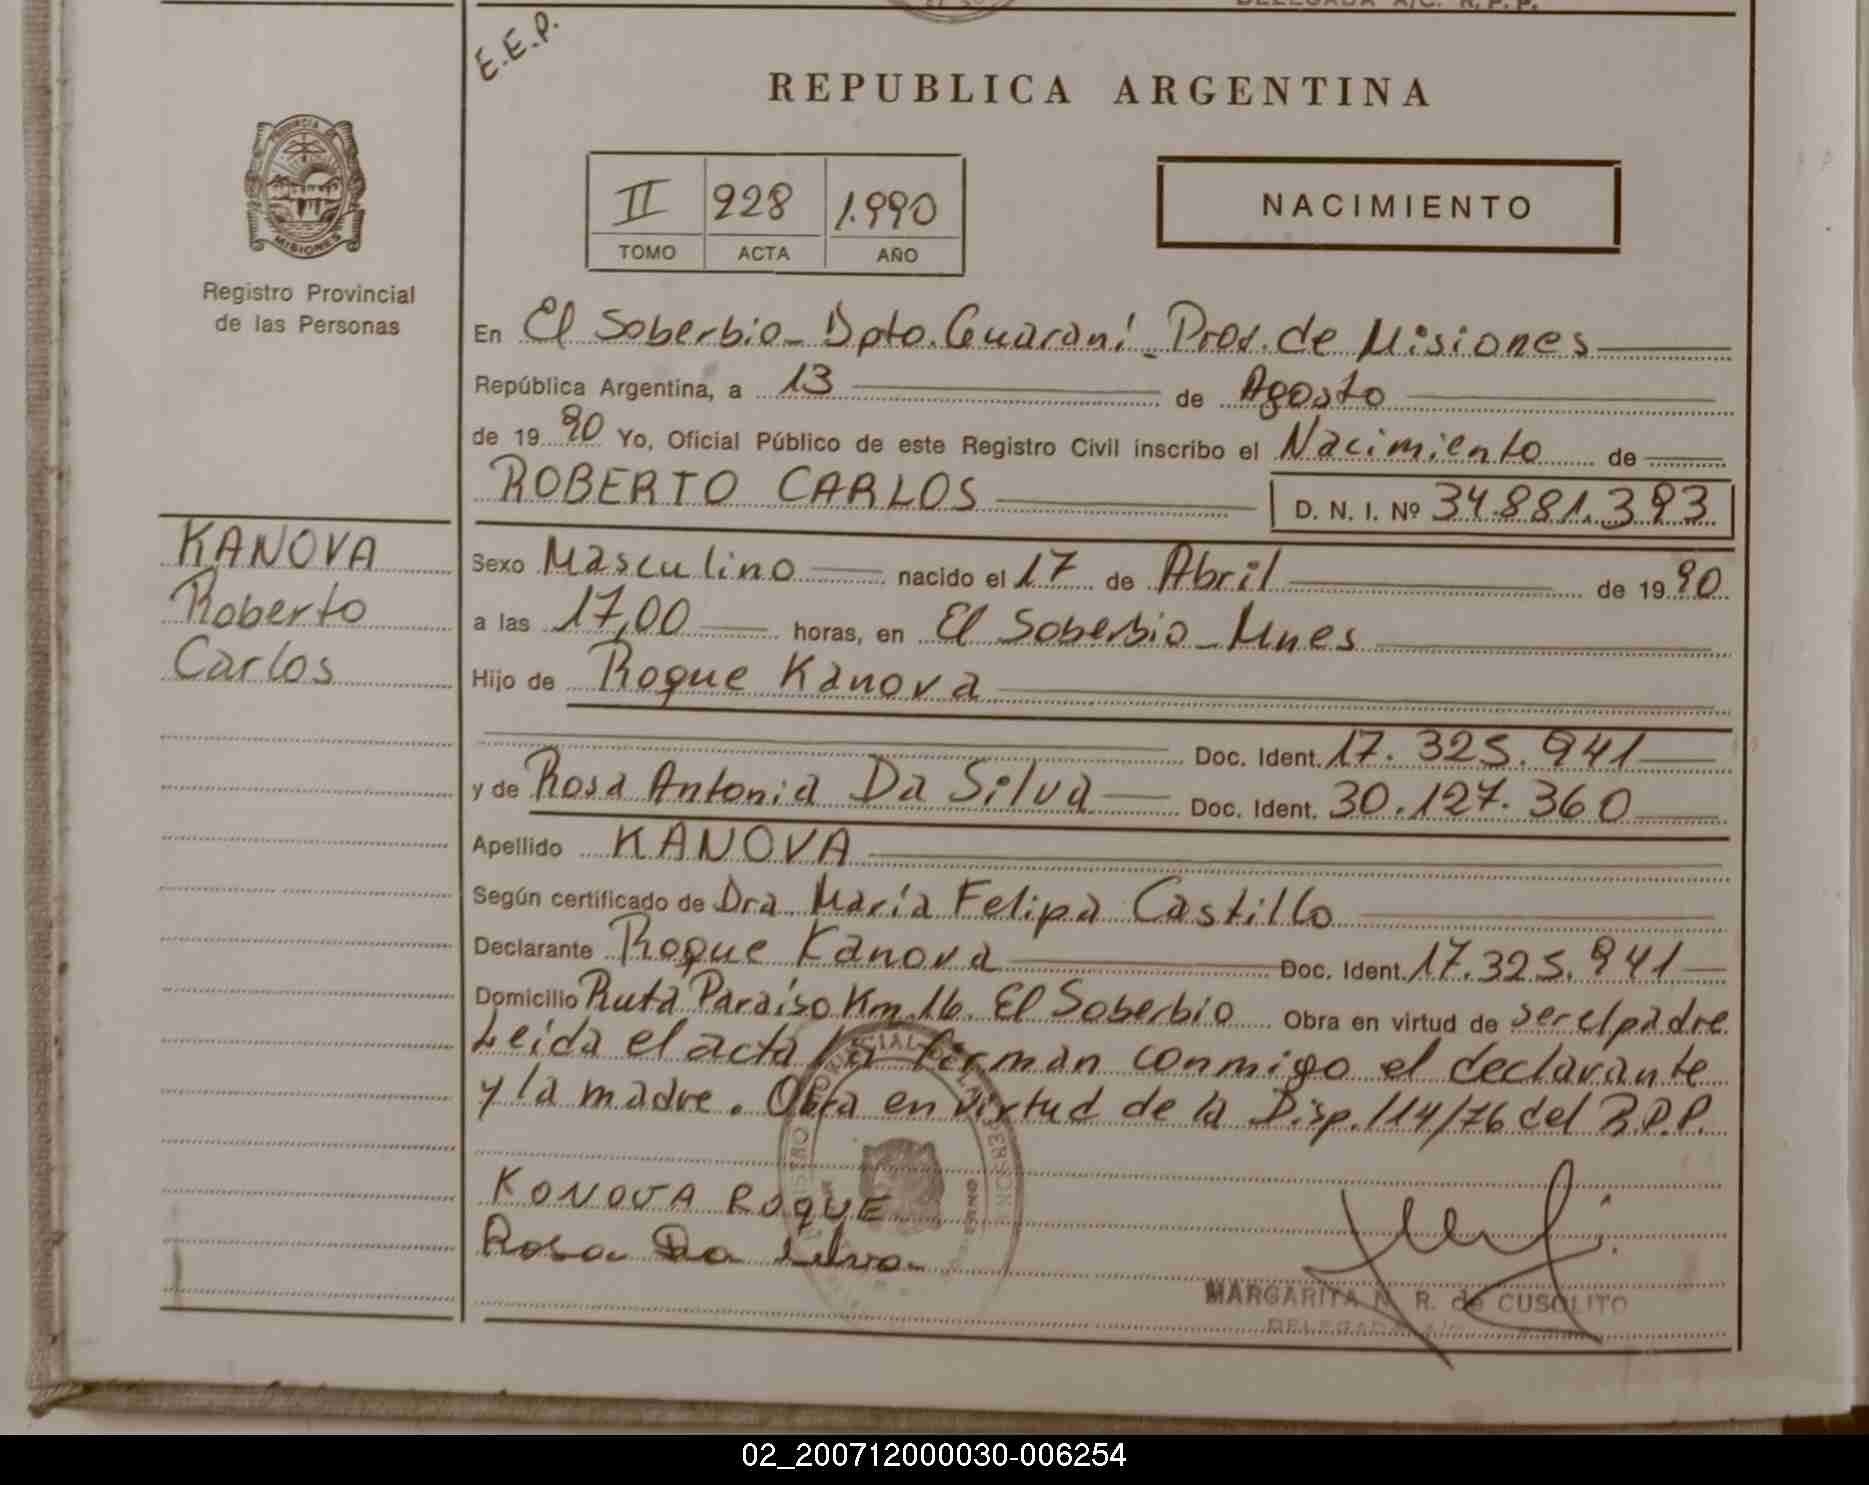 E.E.P.
REPUBLICA ARGENTINA
PROVINCIA DE
MISIONES
Registro Provincial
de las Personas
II 928 1.990
TOMO ACTA AÑO
NACIMIENTO
En El Soberbio_ Dpto. Guaraní_ Prov. de Misiones
República Argentina, a 13 de Agosto
de 19 90 Yo, Oficial Público de este Registro Civil inscribo el Nacimiento de
ROBERTO CARLOS D. N. I. Nº 34.881.393
KANOVA
Roberto
Carlos
Sexo Masculino nacido el 17 de Abril de 19 90
a las 17,00 horas, en El Soberbio_ Mnes
Hijo de Roque Kanova
Doc. Ident. 17.325.941
y de Rosa Antonia Da Silva Doc. Ident. 30.127.360
Apellido KANOVA
Según certificado de Dra. María Felipa Castillo
Declarante Roque Kanova Doc. Ident. 17.325.941
Domicilio Ruta Paraíso Km. 16. El Soberbio Obra en virtud de ser el padre
Leida el acta la firman conmigo el declarante
y la madre. Obra en virtud de la Disp. 114/76 del R.P.P.
KONOVA ROQUE
Rosa Da Silva
MARGARITA N. R. de CUSOLITO
DELEGADA A/C
02_200712000030-006254